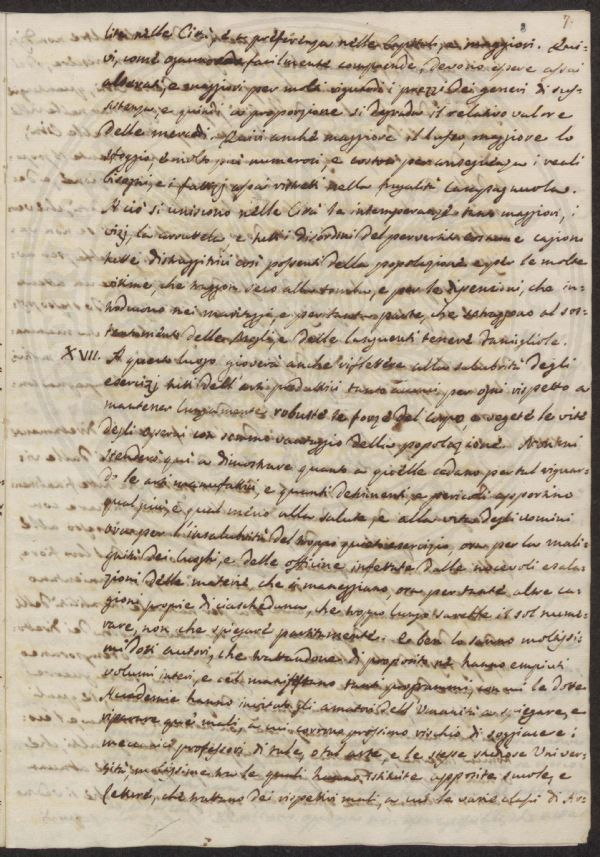 7.
lità nelle Città, è a preferenza nelle Capitali, e maggiori. Qui-
vi, come ognuno facilmente comprende, devono essere assai
alterati, e maggiori per molti riguardi i prezzi dei generi di sus-
sistenza, e quindi a proporzione si degrada il relativo valore
delle mercedi. Quivi anche maggiore il lusso, maggiore lo
sfoggio è molto più numerosi, e costosi per conseguenza i reali
bisogni, e i fattizj assai ristretti nella frugalità Campagnuola.
A ciò si uniscono nelle Città le intemperanze tanto maggiori, i
vizj, la crapula, e tutti i disordini del pervertito costume cagioni
tutte distruggitrici così possenti della popolazione e per le molte
vittime, che traggon seco alla tomba, e per le dissenzioni, che in-
troducono nei maritaggi, e per tanta parte, che sottraggono al sos-
tentamento delle Mogli, e delle languenti tenere Famigliole.
XVII. A questo luogo gioverà anche riflettere alla salubrità degli
esercizj tutti dell'arti produttrici tanto acconci, per ogni rispetto a
mantener lungamente robuste le forze del Corpo, e vegete le vite
degli operai con sommo vantaggio della popolazione. Non mi
stenderò qui a dimostrare quanto a quelle cedano per tal riguar-
do le arti manufattrici, e quanti detrimenti e pericoli apportino
qual più, e qual meno alla salute, e alla vita degli uomini
ora per l'insalubrità del troppo quieto esercizio, ora per la mali-
gnità dei luoghi, e delle officine infettate dalle nocevoli esala-
zioni delle materie, che si maneggiano, ora per tante altre ca-
gioni proprie di ciascheduna, che troppo lungo sarebbe il sol nume-
rare, non che spiegare partitamente. E ben lo sanno moltissi-
mi Dotti autori, che trattandone di proposito ne hanno empiuti
volumi interi, e cel manifestano tanti programmi, con cui le dotte
Accademie hanno invitato gli amatori dell'Umanità a spiegare, e
riparare quei mali, a cui corrono prossimo rischio di soggiacere i
meccanici professori di tale, o tal arte, e le stesse studiose Univer-
sità moltissime tra le quali hanno istituite apposite scuole, e
letture, che trattano dei rispettivi mali, a cui le varie classi di Ar-